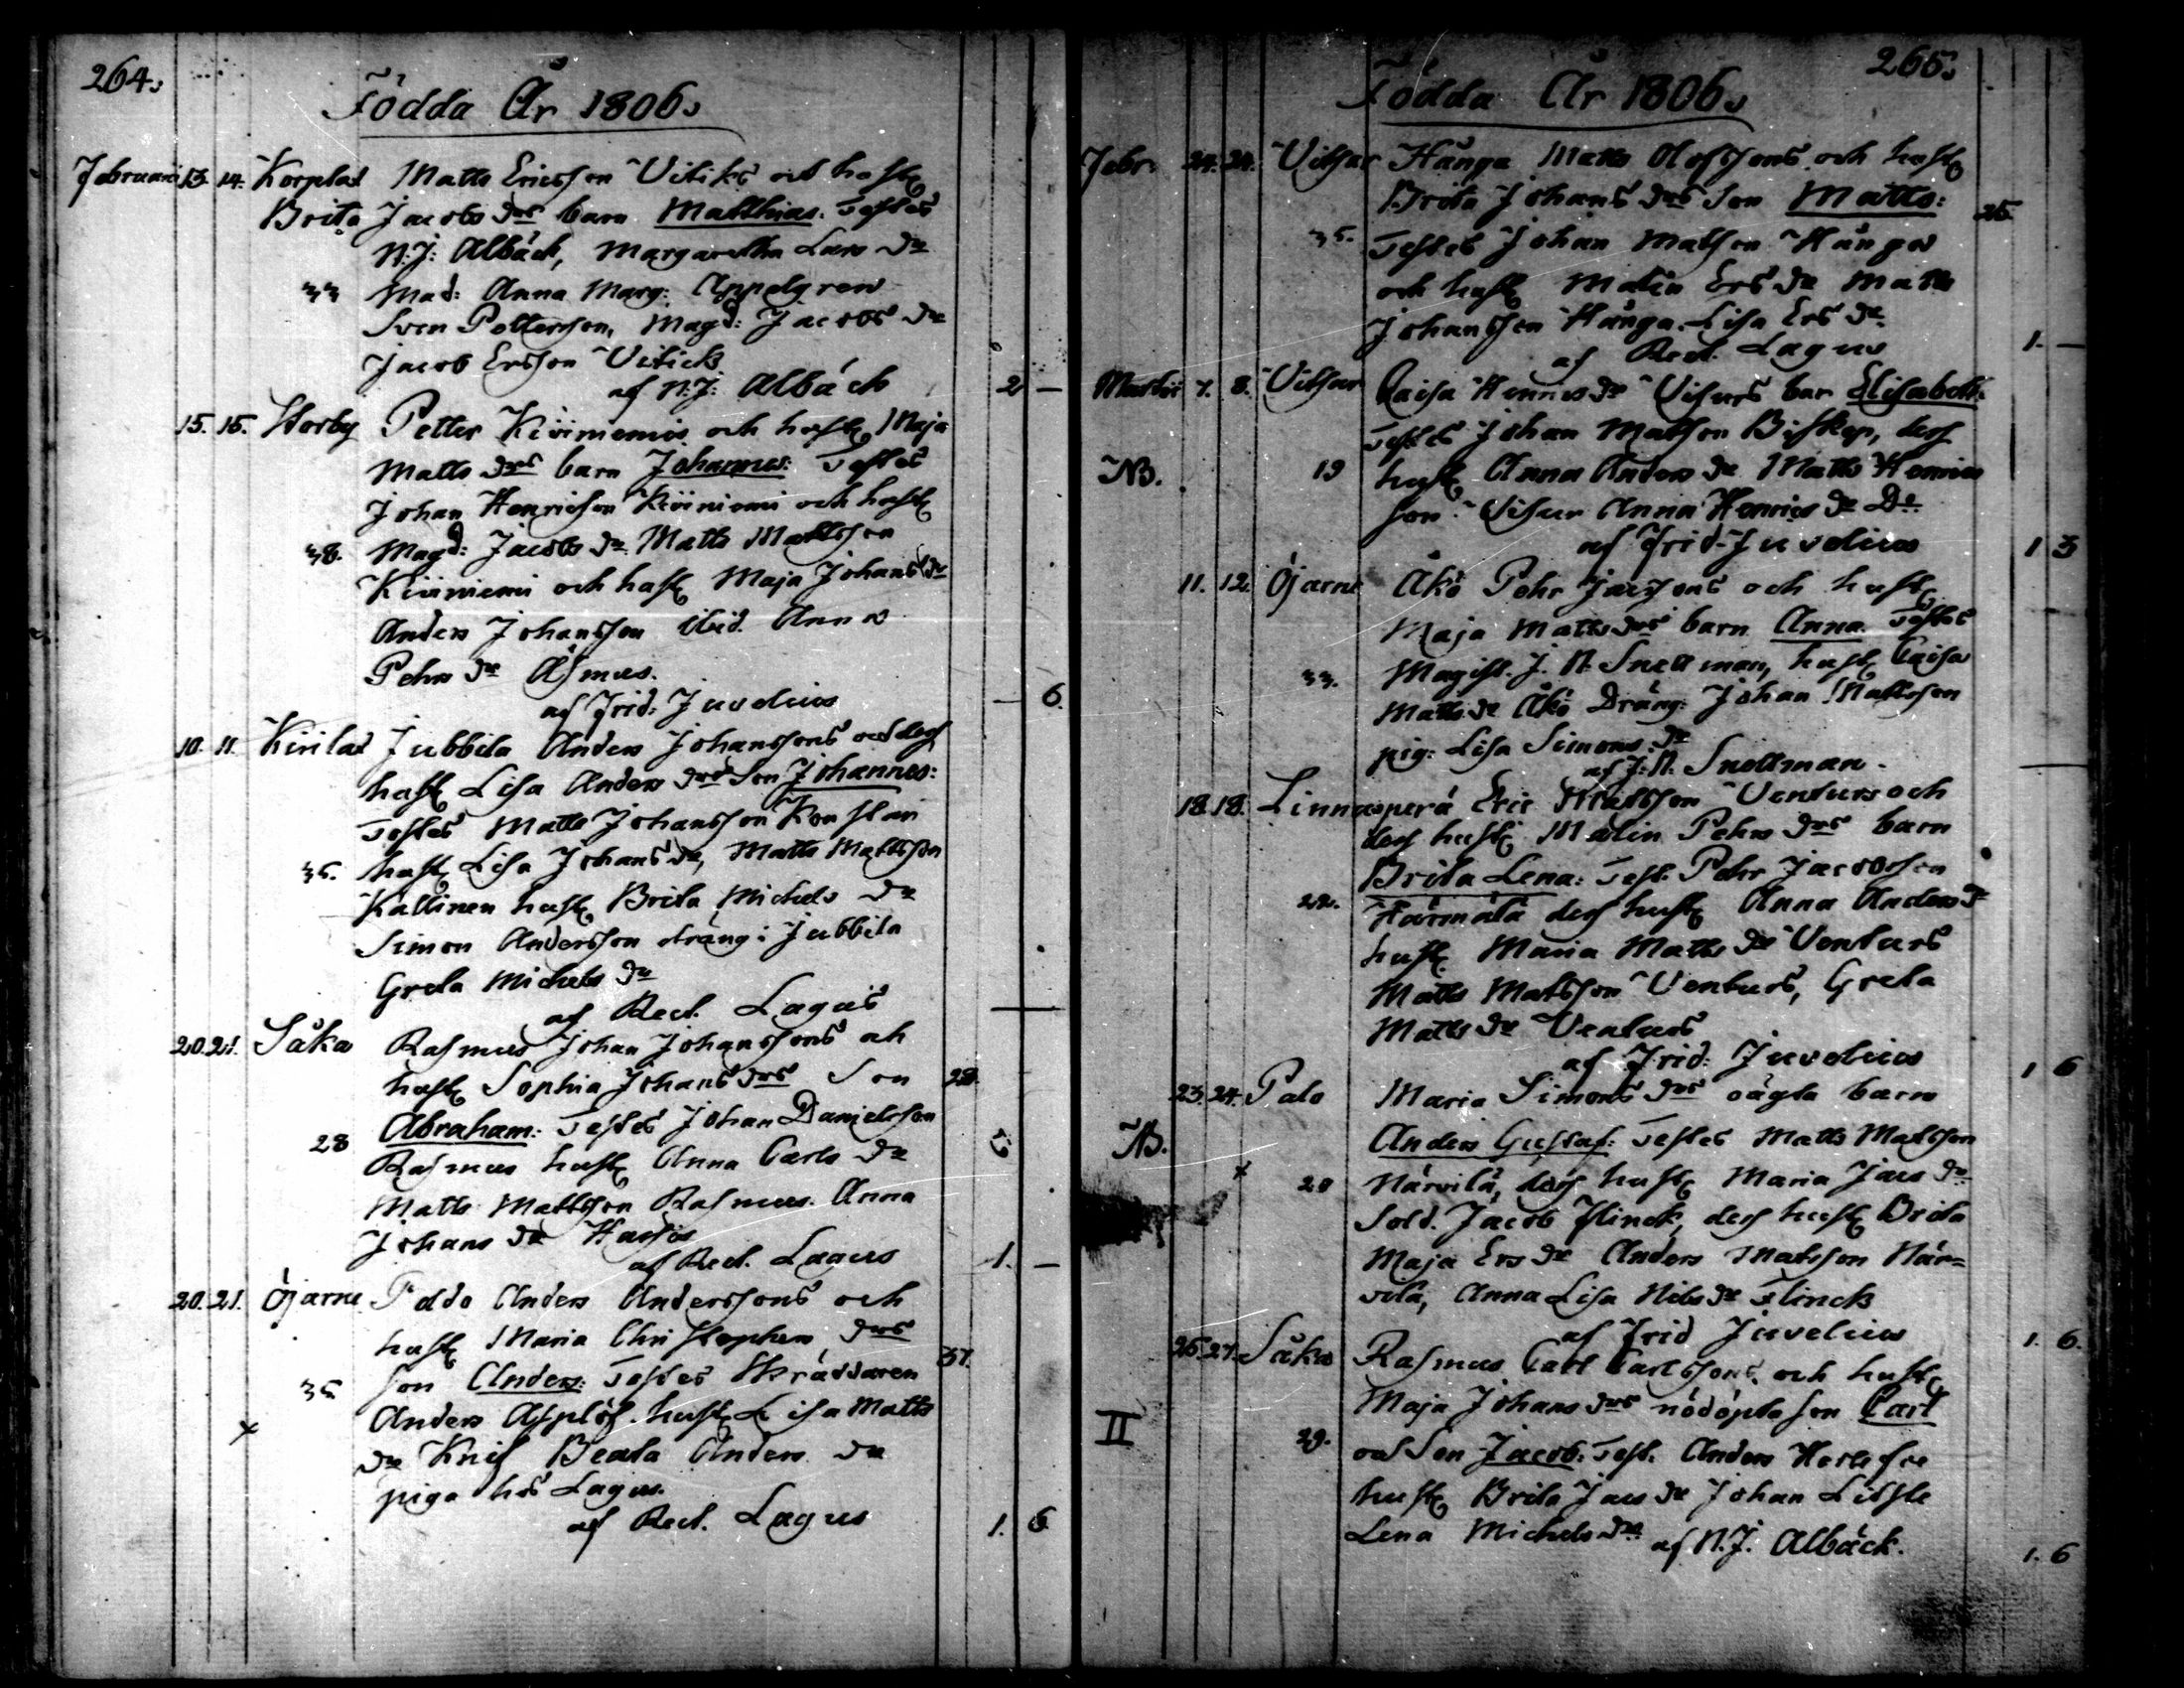 264.
Födda År 1806.
Februari 13. 14. Korplax Matts Ericsson Vitiks och hust
Brita Jacobs drs barn Matthias. Testes
N: J: Albäck, Margaretha Lars dr
33 Mad: Anna Marg: Appelgren
Sven Pettersson, Magd: Jacobs dr
Jacob Ersson Vitick
af N: J: Albäck 2 —
15. 16. Storby Petter Kiviniemis och hust Maja
Matts drs barn Johannes: Testes
Johan Henricson Kiviniemi och hust
38. Magd: Jacobs dr Matts Mattsson
Kiviniemi och hust Maja Johans dr
Anders Johansson ibid. Anna
Pehrs dr Åsmus.
af Frid: Juvelius — 6.
10. 11. Kirilax Jubbila Anders Johanssons och dess
hust Lisa Anders drs Son Johannes:
Testes Matts Johansson
35. hust Lisa Johans dr, Matts Mattsson
Kallinen hust Brita Michels dr
Simon Andersson dräng i Jubbila
Greta Michels dr
af Rect. Lagus —
20. 21. Såka Rasmus Johan Johanssons och
hust Sophia Johans drs Son 28.
Abraham: Testes Johan Danielsson
28 Rasmus hust Anna Carls dr
Matts Mattsson Rasmus. Anna
Johans dr
af Rect. Lagus 1. —
20. 21. Öjarne Poldo Anders Anderssons och
hust Maria Christophers drs 37.
35 son Anders: Testes Skräddaren
Anders Asplöf hust Lisa Matts
x dr Knif Beata Anders dr
piga hos Lagus.
af Rect. Lagus 1. 6
265.
Födda År 1806.
Febr. 24. 24. Vitsar Hånga Matts Olofssons och hust
Brita Johans drs Son Matts: 25.
35. Testes Johan Matsson Hånga
och hust Malin Ers dr Matts
Johansson Hånga. Lisa Ers dr.
af Rect. Lagus 1. —
Martii 7. 8. Vitsar Caisa Henrics dr Visurs bar Elisabeth:
Testes Johan Matsson Biskop, dess
NB. 19 hust Anna Anders dr Matts Henrics
son Visur Anna Henrics dr Do
af Frid. Juvelius 1 3
11. 12. Öjarne Åkö Pehr Jacssons och hust
Maja Matts drs barn Anna. Testes
33. Magist. J. N. Snellman, hust Caisa
Matts dr Åkö Dräng: Johan Mattsson
pig: Lisa Simons: dr
af J: N. Snellman. —
18. 18. Linnasperä Eric Mattsson Venturs och
dess hust Malin Pehrs drs barn
Brita Lena: Test. Pehr Jacobsson
22. Härmälä dess hust Anna Anders dr
hust Maria Matts dr Venturs
Matts Matsson Venturs, Greta
Matts dr Venturs
af Frid: Juvelius 1 6
23. 24. Palo Maria Simons drs oägta barn
NB. Anders Gustaf: Testes Matts Matsson
x 20 Närvilä, dess hust Maria Jacs dr
Sold. Jacob Flinck, dess hust Brita
Maja Ers dr Anders Matsson När=
vilä, Anna Lisa Nils dr Flinck
af Frid Juvelius 1. 6.
26. 27. Såka Rasmus Carl Carlssons, och hust
Maja Johans drs nödöpta son Carl
II 29. och Son Jacob. Test. Anders
hust Brita Jacs dr Johan
Lena Michels dr af N. J. Albäck. 1. 6